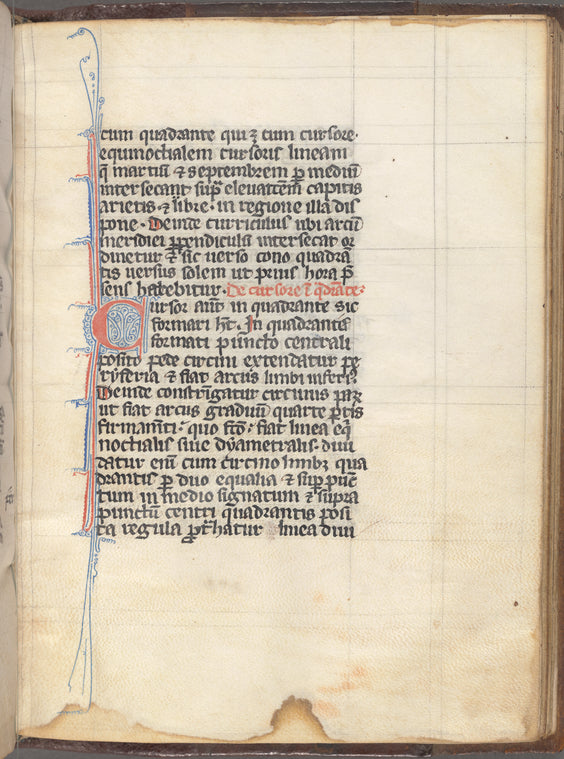 cum quadrante qui ꝫ cum cursore·
equinoctialem cursoris lineam
q̄ martiū ⁊ septembrem ꝑ mediū
intersecant supͣ eleuatōem capitis
arietis· ⁊ libre· in regione illa dis
pone· Deinde curriculus ubi arcū
meridiei ꝑpendiculū intersecat or
dinetur ⁊ sic uerso cono quadrā
tis uersus solem ut prius hora p̄
sens habebitur· De cursore ī qͣdrāte·
Cursor aūt in quadrante sic
formari hꝫt· In quadrantis
formati puncto centrali
posito pede circini extendatur pe
ryferia ⁊ fiat arcus limbi inferi⁹·
Deinde constringatur circinus paꝝ
ut fiat arcus graduū quarte ꝑtis
firmamēti· quo fcō· fiat linea eqͥ
noctialis siue dyametralis· diui
datur enī cum circino limbꝫ qua
drantis ꝑ duo equalia ⁊ sup̄ pūc
tum in medio signatum ⁊ supra
punctū centri quadrantis posi
ta regula ꝓtͣhatur linea diui